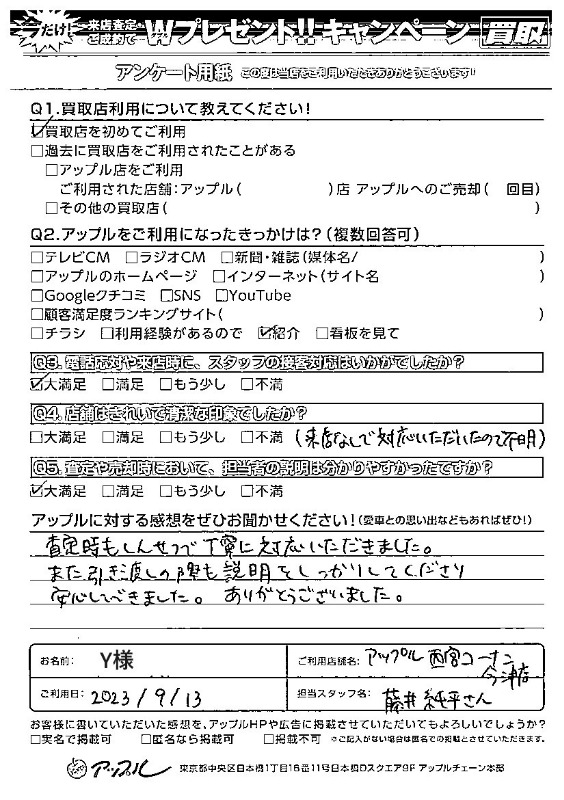 今だけ! 来店査定・ご成約で Wプレゼント!! キャンペーン 買取
アンケート用紙 この度は当店をご利用いただきありがとうございます!
Q1.買取店利用について教えてください!
☑買取店を初めてご利用
□過去に買取店をご利用されたことがある
□アップル店をご利用
ご利用された店舗:アップル( )店 アップルへのご売却( 回目)
□その他の買取店( )
Q2.アップルをご利用になったきっかけは?(複数回答可)
□テレビCM □ラジオCM □新聞・雑誌(媒体名/ )
□アップルのホームページ □インターネット(サイト名 )
□Googleクチコミ □SNS □YouTube
□顧客満足度ランキングサイト( )
□チラシ □利用経験があるので ☑紹介 □看板を見て
Q3.電話応対や来店時に、スタッフの接客対応はいかがでしたか?
☑大満足 □満足 □もう少し □不満
Q4.店舗はきれいで清潔な印象でしたか?
□大満足 □満足 □もう少し □不満 (来店なしで対応いただいたので不明)
Q5.査定や売却時において、担当者の説明は分かりやすかったですか?
☑大満足 □満足 □もう少し □不満
アップルに対する感想をぜひお聞かせください!(愛車との思い出などもあればぜひ!)
査定時もしんせつで丁寧に対応いただきました。
また引き渡しの際も説明をしっかりしてくださり
安心してきました。 ありがとうございました。
お名前: Y様 ご利用店舗名: アップル 西宮コーナン今津店
ご利用日: 2023/9/13 担当スタッフ名: 藤井純平さん
お客様に書いていただいた感想を、アップルHPや広告に掲載させていただいてもよろしいでしょうか?
□実名で掲載可 □匿名なら掲載可 □掲載不可 ※ご記入がない場合は匿名での掲載とさせていただきます。
アップル 東京都中央区日本橋1丁目16番11号日本橋Dスクエア9F アップルチェーン本部